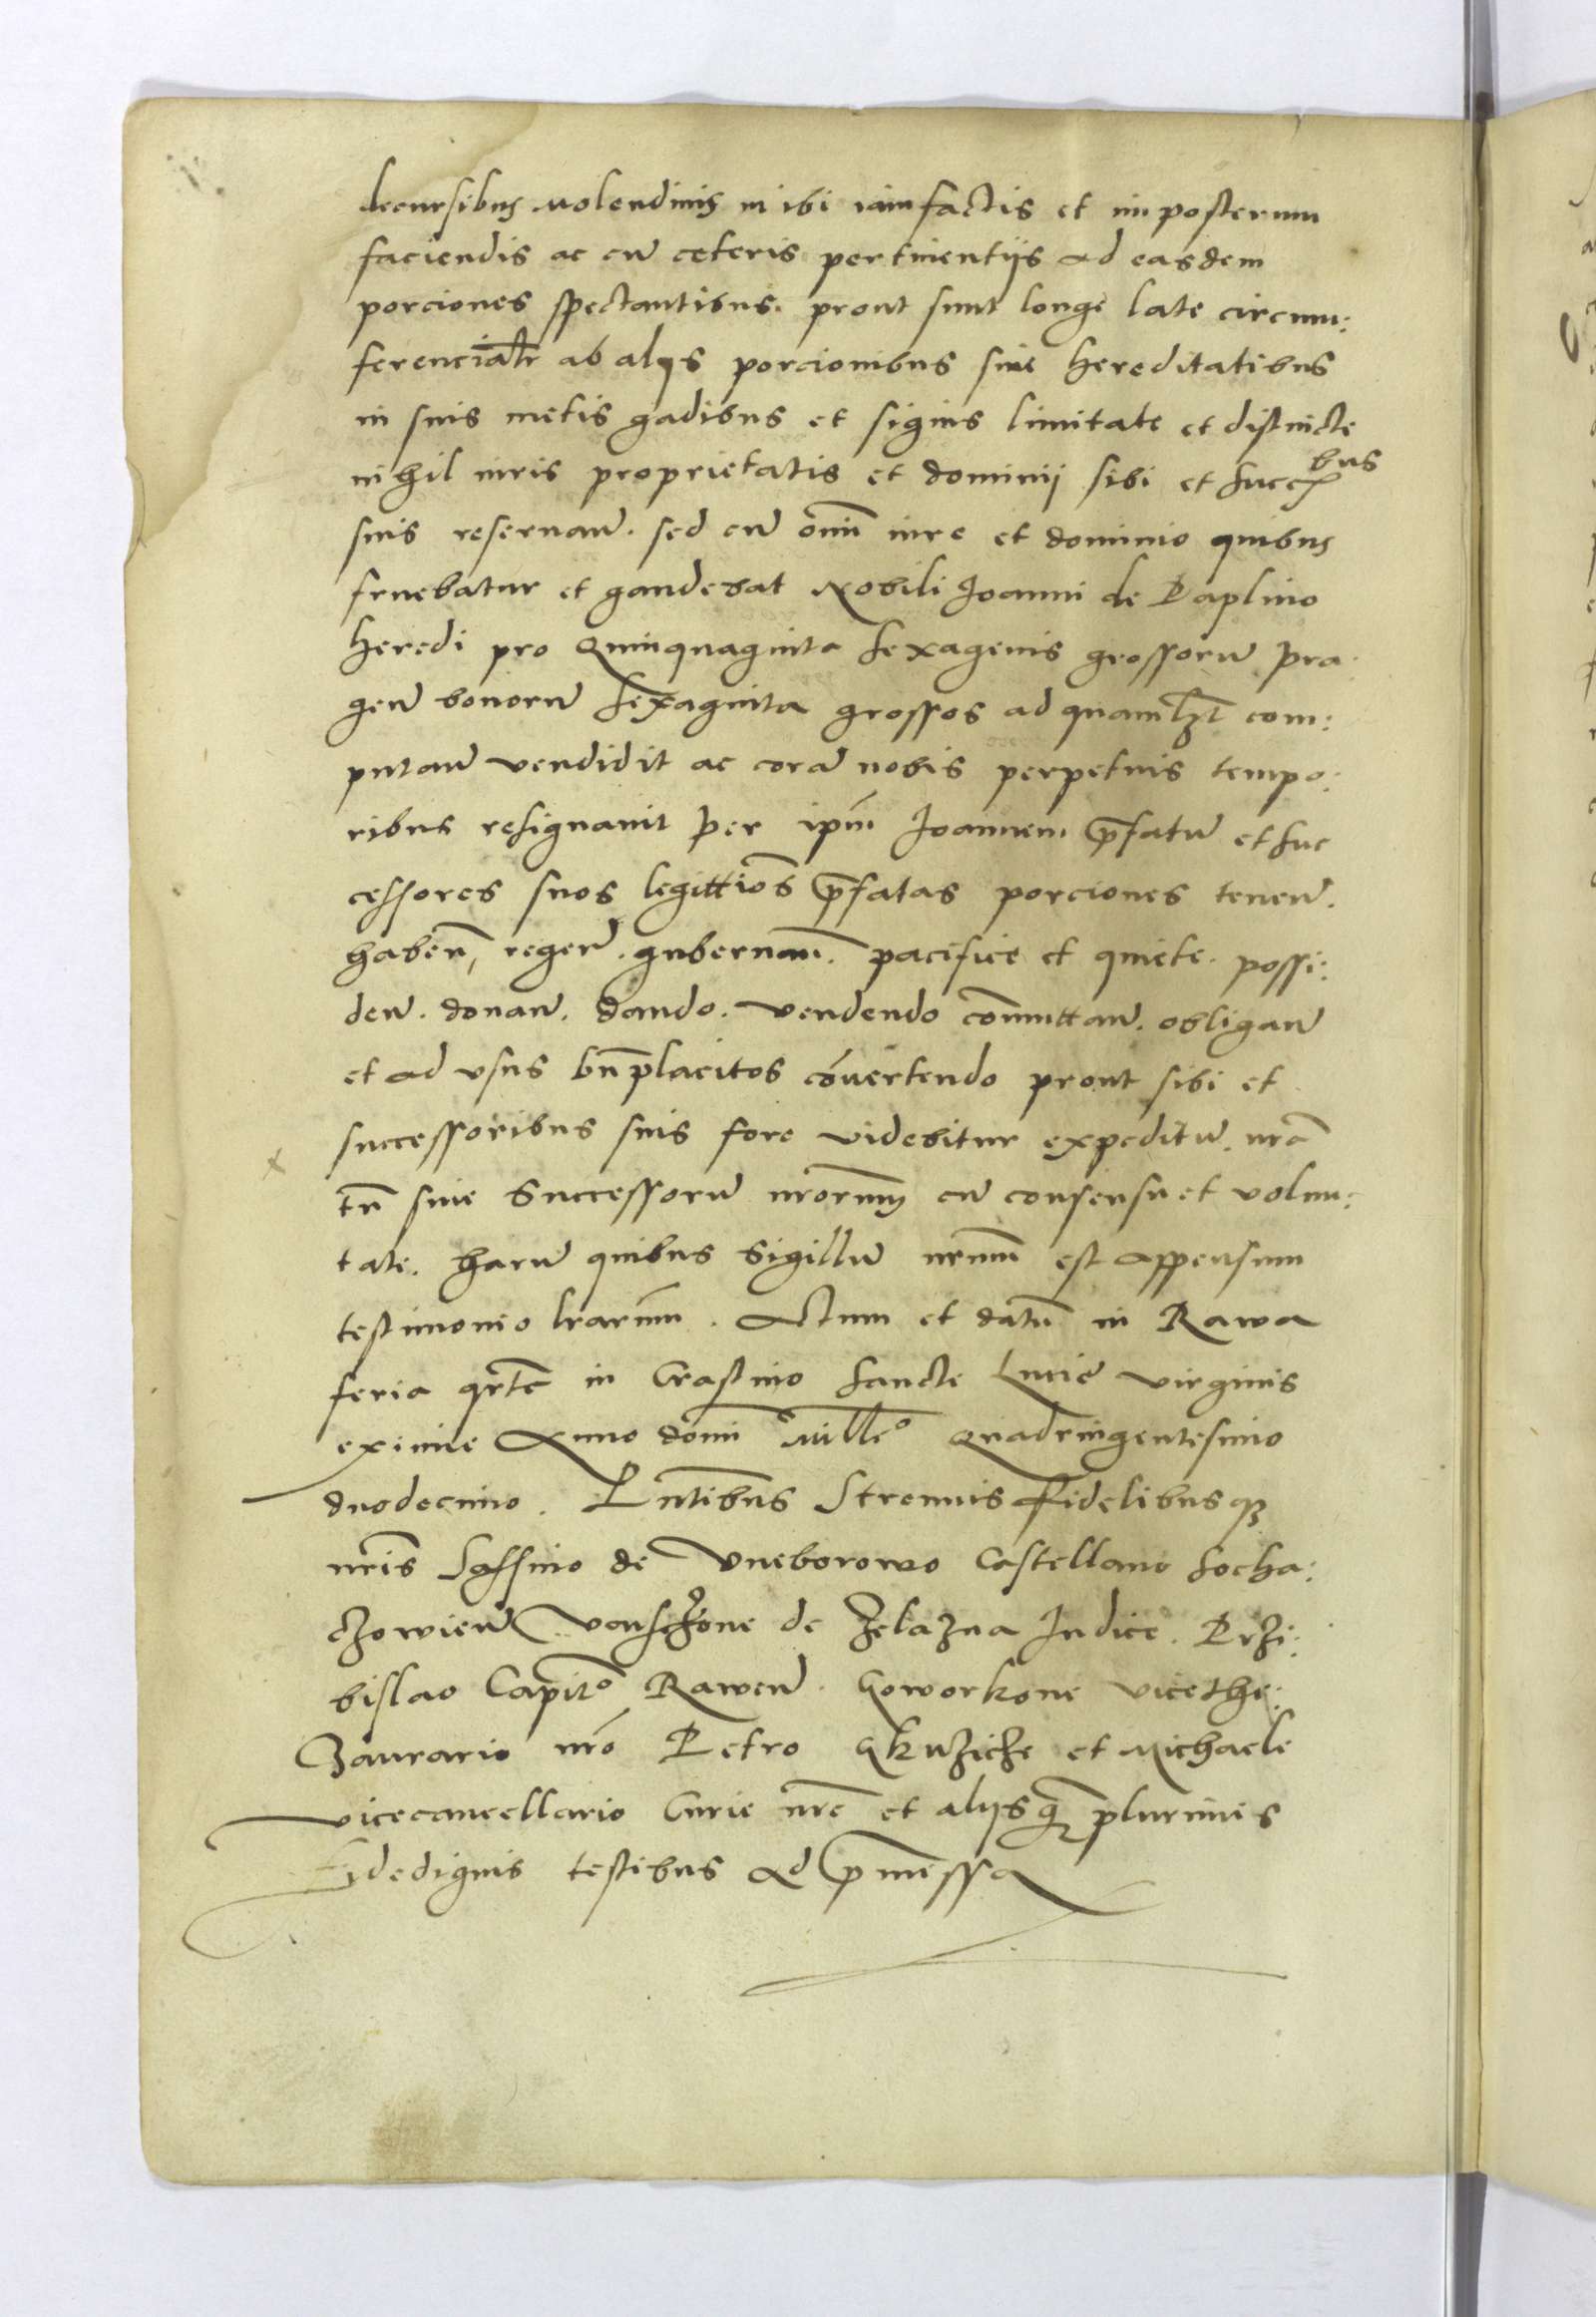 decursibus molendinis in ibi iam factis et imposterum
faciendis ac cu̅ ceteris pertinentiis ad easdem
porciones spectantibus. prout sunt longe late circum:
ferencialr̅ ab alijs porcionibus siue hereditatibus
in suis metis gadibus et signis limitate et distincte
nihil iuris proprietatis et dominij sibi et succ bus
suis reseruan̅. sed cu̅ om̅i iure et dominio quibus
fruebatur et gaudebat Nobili Joanni de Paplino
heredi pro Quinquaginta sexagenis grossoru̅ pra
gen̅ bonoru̅ sexaginta grossos ad quamlzt̅ com:
putan̅ vendidit ac cora̅ nobis perpetuis tempo:
ribus resignauit per ip̅m Joannem p̅fatu̅ et suc
cessores suos legittio̅s p̅fatas porciones tenen̅.
haben̅, regen̅. gubernan̅. pacifice et quiete. possi:
den̅. donan̅. dando. vendendo com̅uttan̅. obligan̅
et ad vsus bn̅placitos co̅uertendo prout sibi et
successoribus suis fore videbitur expeditu̅. nr̅a
tn̅ siue Successoru̅ nr̅orum cu̅ consensu et volun:
tate. haru̅ quibus Sigillu̅ nr̅um est appensum
testimonio lr̅arum. Actum et datu̅ in Rawa
feria qr̅te in Crastino sancte Lucie virginis
eximie Anno domi̅ Mille̅o Quadringentesimo
duodecimo. Pn̅tibus Strenuis Fidelibusq3
nr̅is Sassino de Vneborowo Castellano Socha:
czowien̅ Vanschone de Zelazna Judice. Przi:
bislao Capit̅o Rawen̅. Goworkone vicethe:
Zaurario nr̅o Petro Gkuziche et Michaele
vicecancellario Curie nr̅e et alijsq̅ plurimis
Fidedignis testibus ad p̅missa